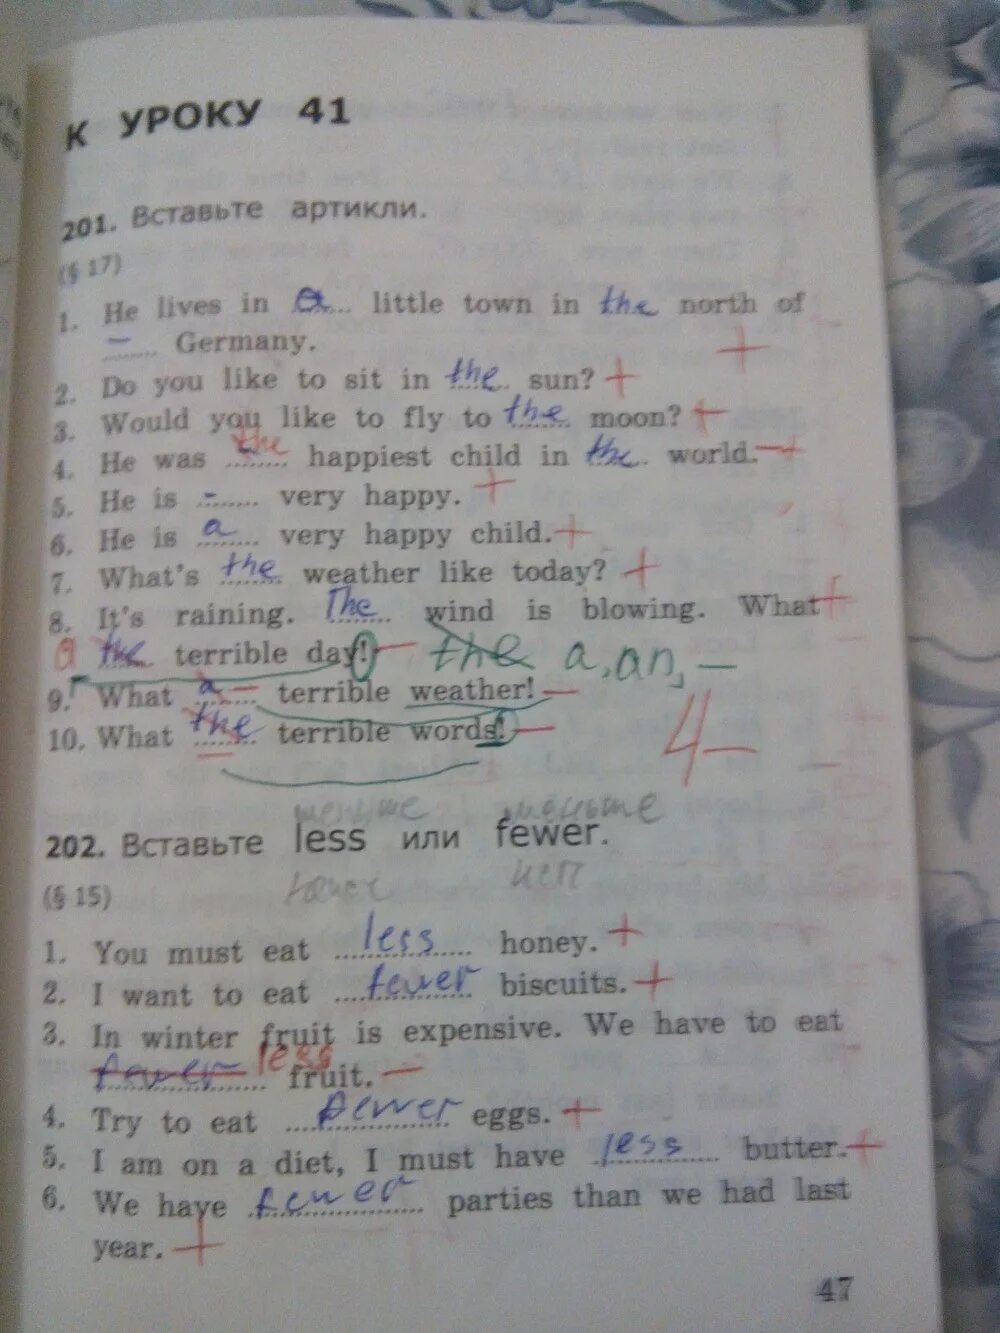 К УРОКУ 41
201. Вставьте артикли.
(§ 17)
1. He lives in a little town in the north of
– Germany. +
2. Do you like to sit in the sun? +
3. Would you like to fly to the moon? +
the
4. He was happiest child in the world. – +
5. He is – very happy. +
6. He is a very happy child. +
7. What's the weather like today? +
8. It's raining. The wind is blowing. What +
a the terrible day! – the a, an, –
9. What a – terrible weather! –
10. What the terrible words! – 4–
меньше меньше
202. Вставьте less или fewer.
(§ 15)
1. You must eat less honey. +
2. I want to eat fewer biscuits. +
3. In winter fruit is expensive. We have to eat
fewer less fruit. –
4. Try to eat fewer eggs. +
5. I am on a diet, I must have less butter. +
6. We have fewer parties than we had last
year. +
47